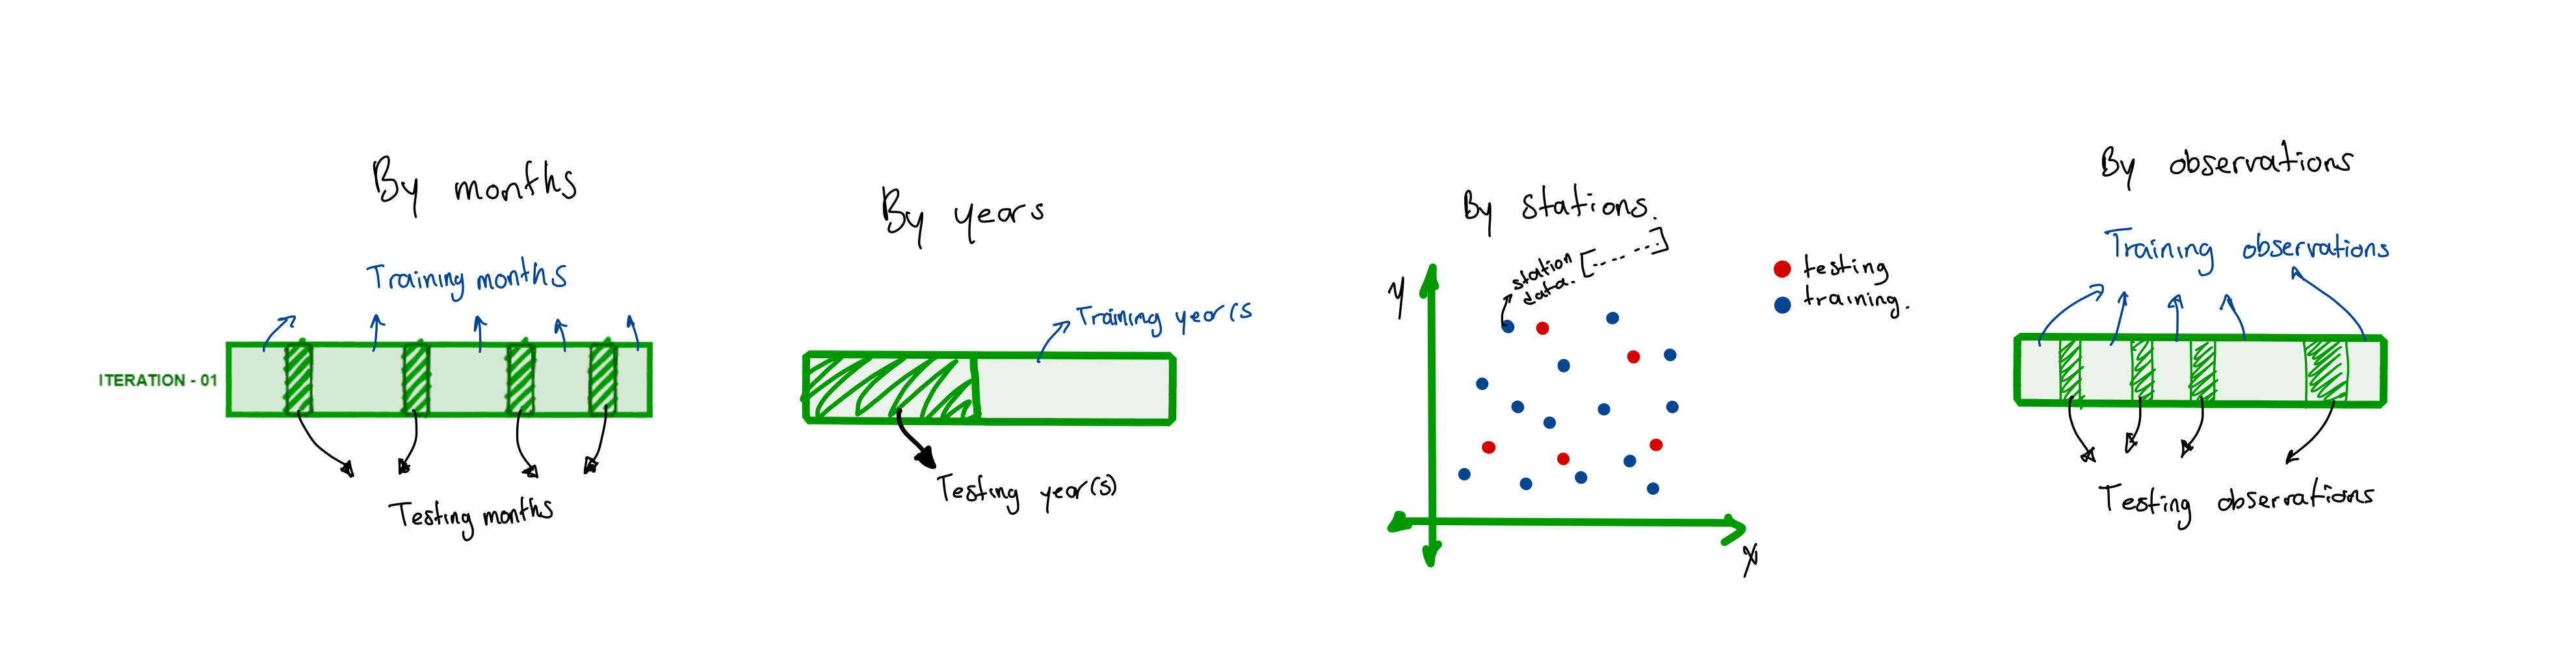 By months
Training months
ITERATION - 01
Testing months
By years
Training year(s
Testing year(s)
By stations.
station
data. [---...]
y
x
testing
training.
By observations
Training observations
Testing observations